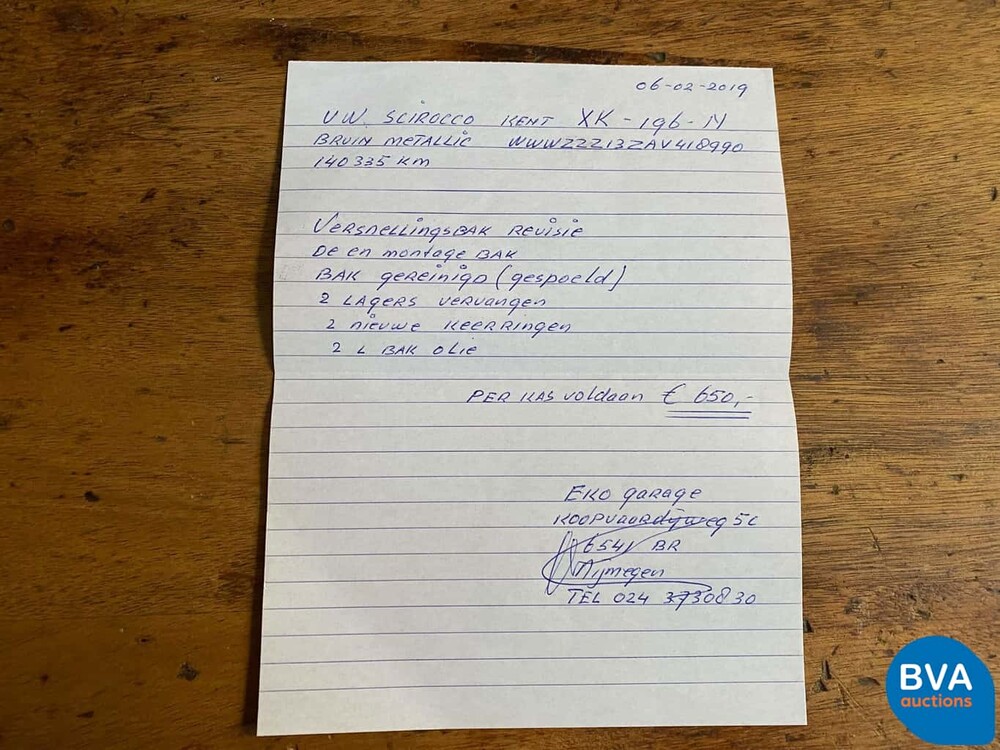 06-02-2019
V.W. SCIROCCO KENT XK-196-N
BRUIN METALLIC WWWZZZ13ZAV418990
140335 KM
VERSNELLINGSBAK REVISIE
DE EN MONTAGE BAK
BAK GEREINIGD (gespoeld)
2 LAGERS VERVANGEN
2 NIEUWE KEERRINGEN
2 L BAK OLIE
PER KAS voldaan € 650,-
EKO garage
KOOPVAARDIJWEG 5C
6541 BR
Nijmegen
TEL 024 3730830
BVA
auctions